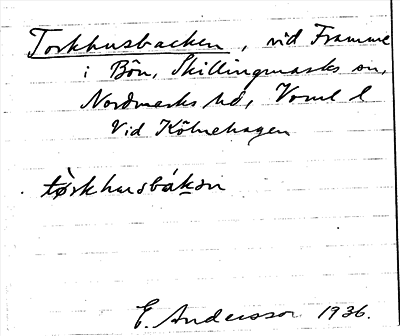 Torkhusbacken, vid Framme
i Bön, Skillingmarks sn,
Nordmarks hd, Vrml l
Vid Kölnehagen
tørkhusbákən
E. Andersson 1936.